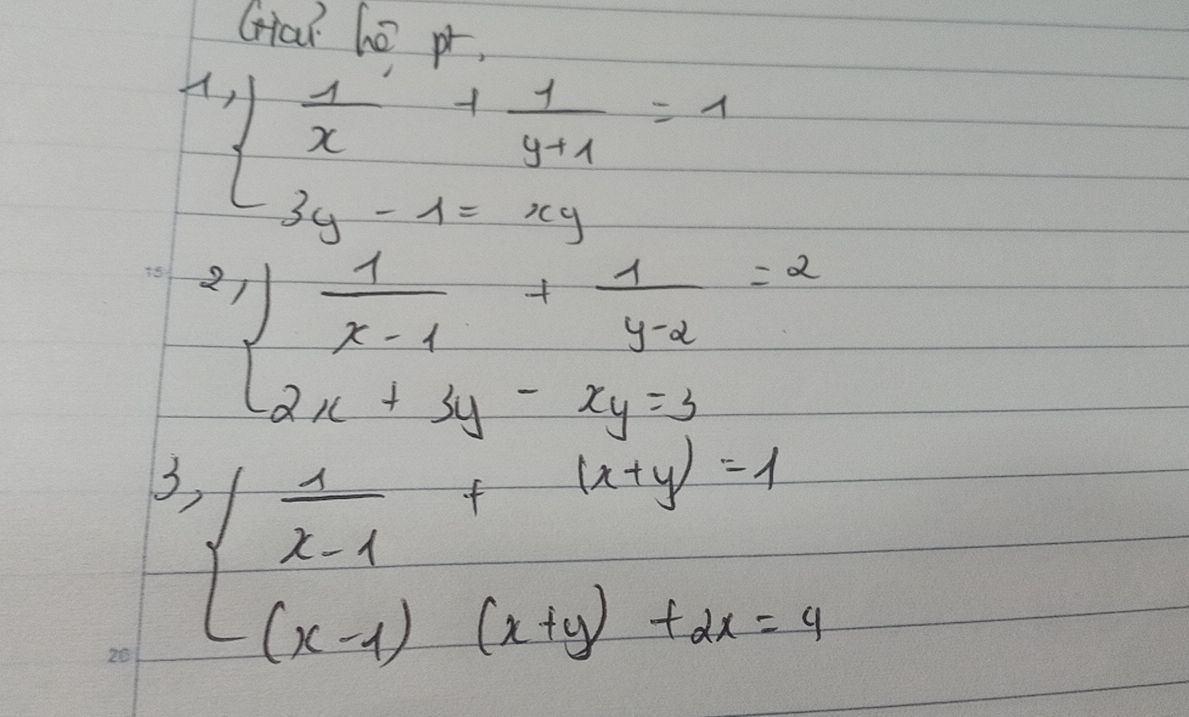 Giải hệ pt.
1, { 1/x + 1/(y+1) = 1
3y - 1 = xy
15
2, { 1/(x-1) + 1/(y-2) = 2
2x + 3y - xy = 3
3, { 1/(x-1) + (x+y) = 1
(x-1) (x+y) + 2x = 4
20